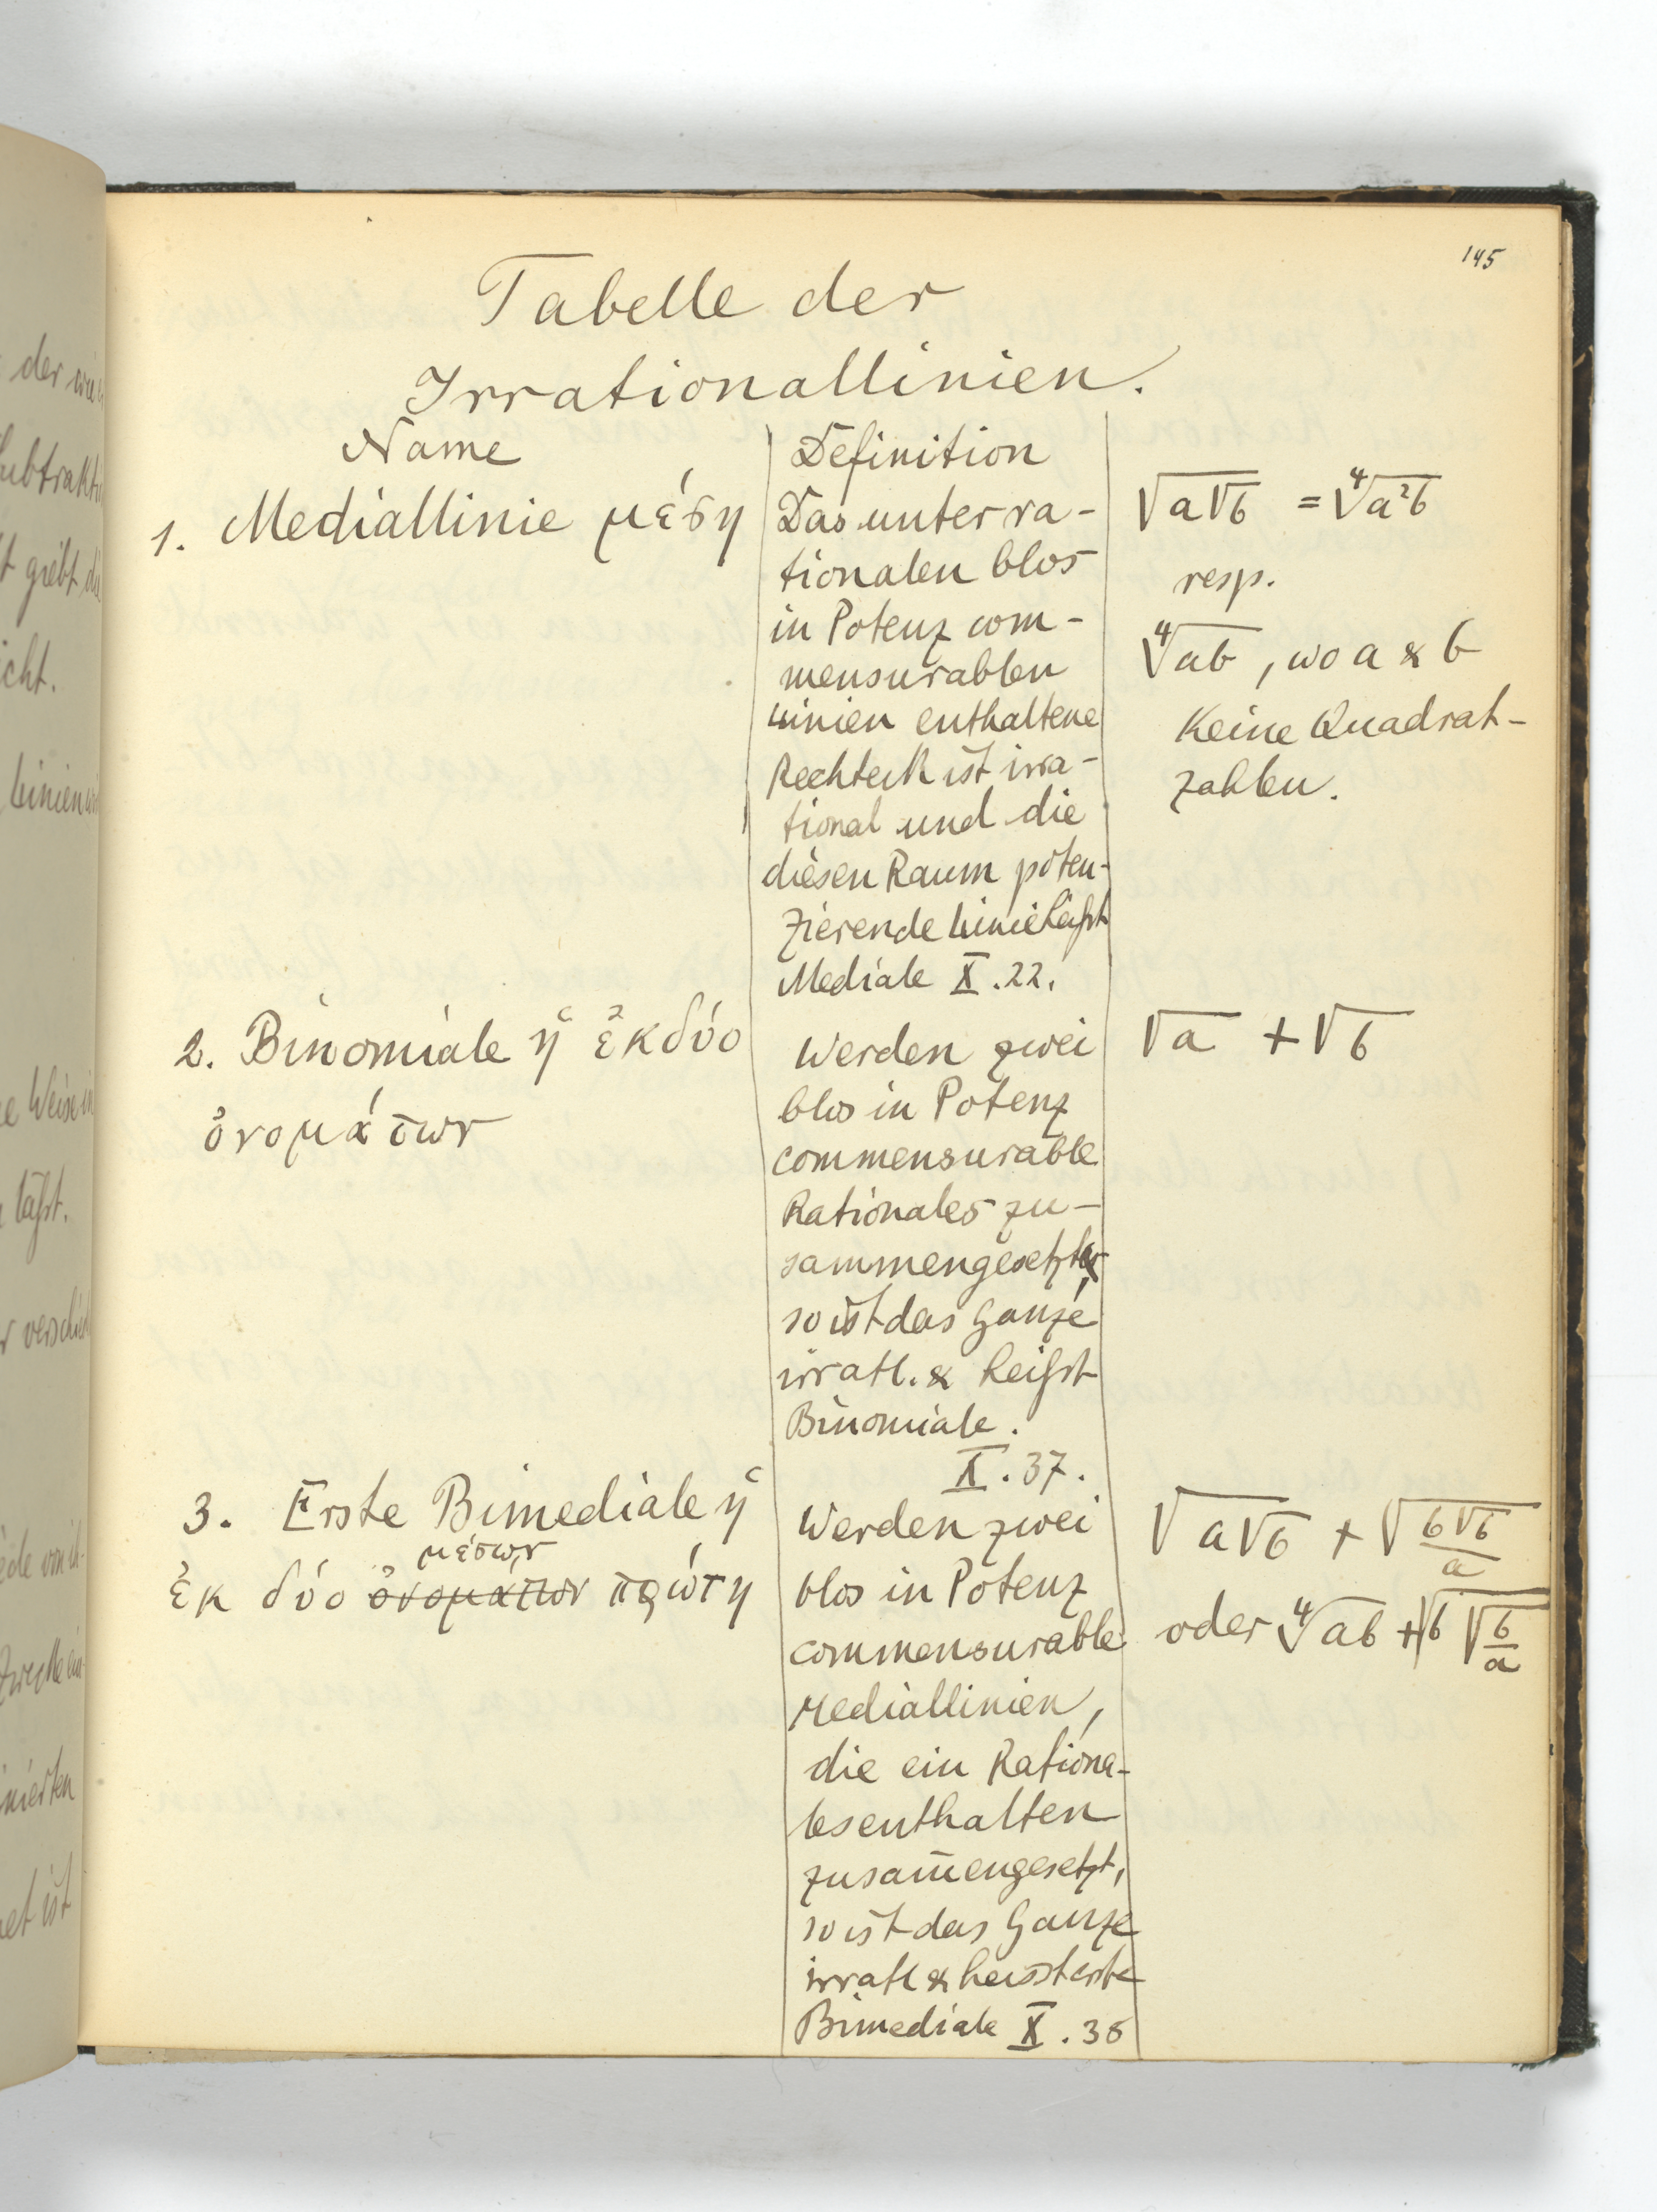 145
Tabelle der
Irrationallinien.
Name
Definition
1. Mediallinie μέση
Das unter ra-
tionalen blos
in Potenz com-
mensurablen
Linien enthaltene
Rechteck ist irra-
tional und die
diesen Raum poten-
zierende Linie heißt
Mediale X.22.
√a√b = ∜a²b
resp.
∜ab, wo a & b
Keine Quadrat-
zahlen.
2. Binomiale ἡ ἐκ δύο
ὀνομάτων
Werden zwei
blos in Potenz
commensurable
Rationales zu-
sammengesetzt,
so ist das Ganze
irratl. & heißt
Binomiale.
X.37.
√a + √b
3. Erste Bimediale ἡ
μέσων
ἐκ δύο ὀνομάτων πρώτη
Werden zwei
blos in Potenz
commensurable
Mediallinien,
die ein Rationa-
les enthalten
zusam̄engesetzt,
so ist das Ganze
irratl & heisst erste
Bimediale X.38
√a√b + √(b√b/a)
oder ∜ab + √b√(b/a)
der
Subtrakti
giebt die
icht.
Linien
Weise in
läßt.
r verschied
Zwecke
nierten
et ist